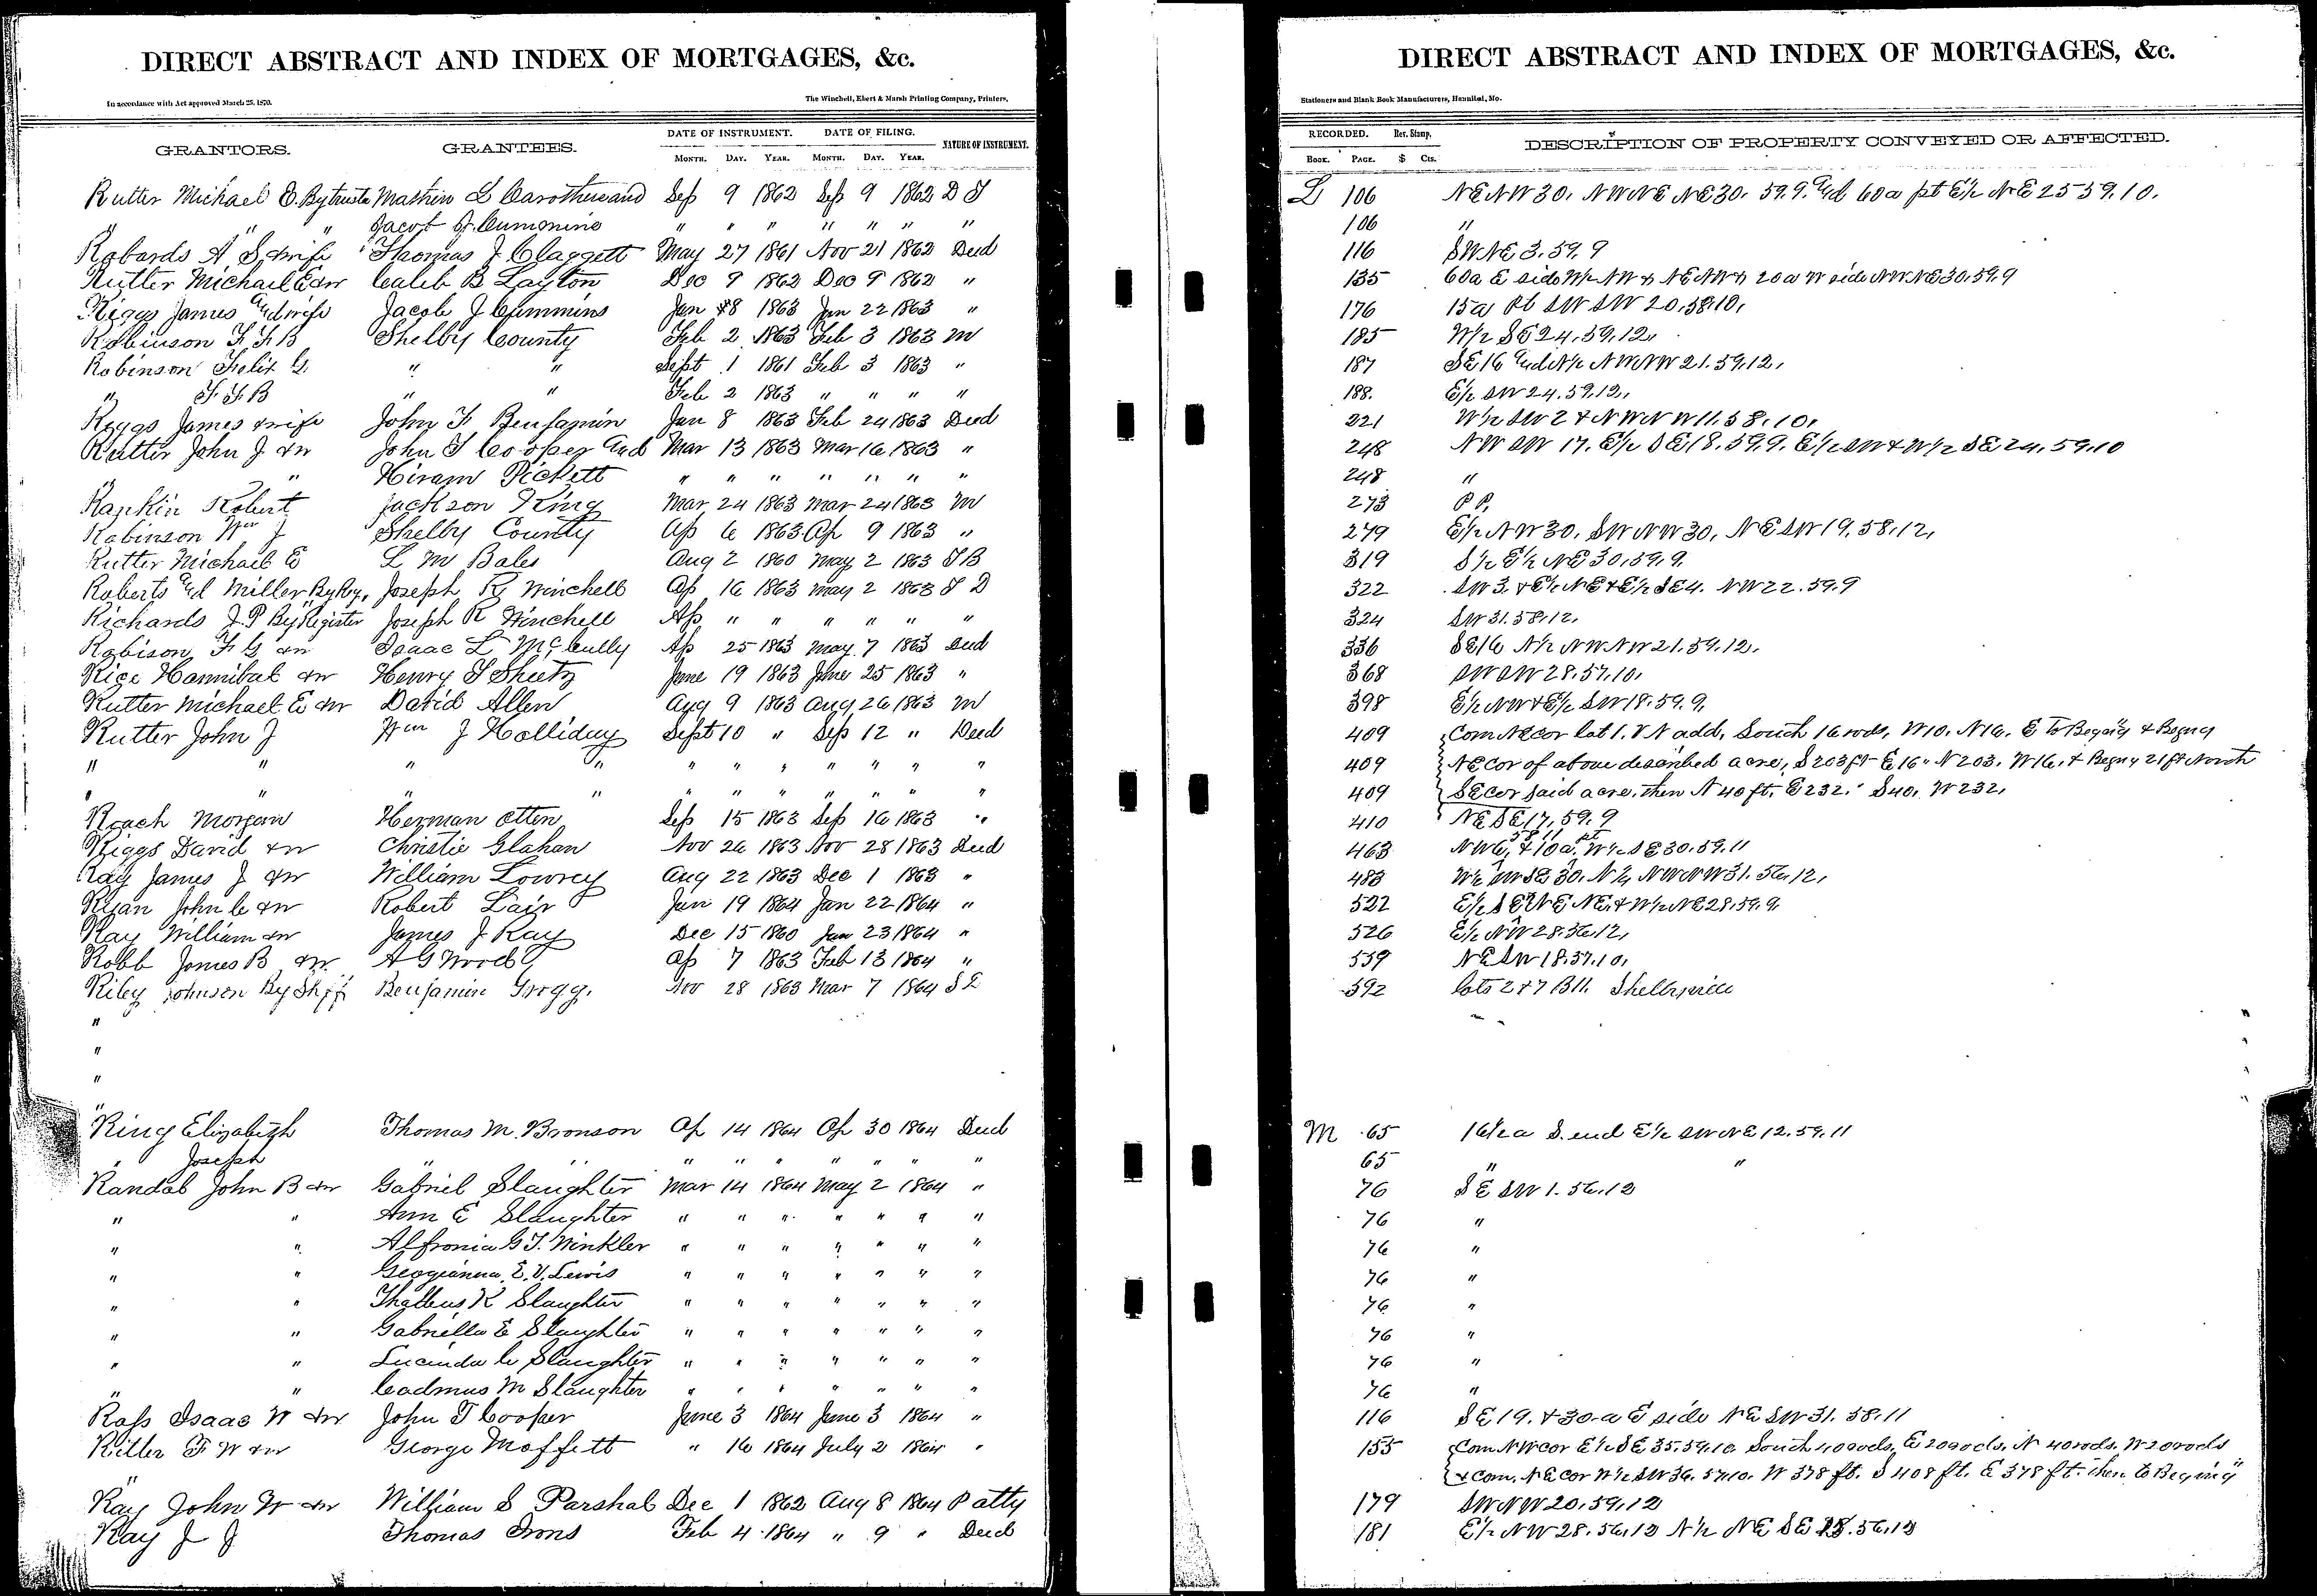 DIRECT ABSTRACT AND INDEX OF MORTGAGES, &c.
In accordance with Act approved March 25, 1870. The Winchell, Ebert & Marsh Printing Company, Printers,
GRANTORS. GRANTEES. DATE OF INSTRUMENT. DATE OF FILING. NATURE OF INSTRUMENT.
MONTH. DAY. YEAR. MONTH. DAY. YEAR.
Rutter Michael E. By truste Mathew L Carothers and Sep 9 1862 Sep 9 1862 D T
" " Jacob J. Cummins " " " " " " "
Robards A S & wife Thomas J Claggett May 27 1861 Nov 21 1862 Deed
Rutter Michael E & w Caleb B Layton Dec 9 1862 Dec 9 1862 "
Riggs James and wife Jacob J Cummins Jan 8 1863 Jan 22 1863 "
Robinson F. F. B Shelby County Feb 2 1863 Feb 3 1863 M
Robinson Felix G. " " Sept 1 1861 Feb 3 1863 "
" F. F. B " " Feb 2 1863 " " " "
Riggs James & wife John F Benjamin Jan 8 1863 Feb 24 1863 Deed
Rutter John J & w John T Cooper and Mar 13 1863 Mar 16 1863 "
" Hiram Pickett " " " " " " "
Rankin Robert Jackson King Mar 24 1863 Mar 24 1863 M
Robinson Wm J Shelby County Ap 6 1863 Ap 9 1863 "
Rutter Michael E L M Bales Aug 2 1860 May 2 1863 T B
Roberts and Miller By Rg. Joseph R Winchell Ap 16 1863 May 2 1863 T D
Richards J. P By Register Joseph R Winchell Ap " " " " " "
Robison F G & w Isaac L McCully Ap 25 1863 May 7 1863 Deed
Rice Hannibal & w Henry T Sheetz June 19 1863 June 25 1863 "
Rutter Michael E & w David Allen Aug 9 1863 Aug 26 1863 M
Rutter John J Wm J Holliday Sept 10 " Sep 12 " Deed
" " " " " " " " " " "
" " " " " " " " " " "
Roach Morgan Herman Otten Sep 15 1863 Sep 16 1863 "
Riggs David & w Christie Glahan Nov 26 1863 Nov 28 1863 Deed
Ray James J & w William Lowrey Aug 22 1863 Dec 1 1863 "
Ryan John C & w Robert Lair Jan 19 1864 Jan 22 1864 "
Ray William & w James J Ray Dec 15 1860 Jan 23 1864 "
Robb James B & w A G Wood Ap 7 1863 Feb 13 1864 "
Riley Johnson By Shff Benjamin Grogg. Nov 28 1863 Mar 7 1864 S D
"
"
"
"
Ring Elizabeth Thomas M. Bronson Ap 14 1864 Ap 30 1864 Deed
" Joseph " " " " " " " " "
Randol John B & w Gabriel Slaughter Mar 14 1864 May 2 1864 "
" " Ann E Slaughter " " " " " " "
" " Alfronia G T. Winkler " " " " " " "
" " Georgianna E. V. Lewis " " " " " " "
" " Thaddeus K Slaughter " " " " " " "
" " Gabriella E Slaughter " " " " " " "
" " Lucinda C Slaughter " " " " " " "
" " Cadmus M Slaughter " " " " " " "
Ross Isaac W & w John T Cooper June 3 1864 June 3 1864 "
Ritter F W & w George Moffett " 16 1864 July 2 1864 "
"
Ray John W & w William S Parshal Dec 1 1862 Aug 8 1864 P atty
Ray J J Thomas Irons Feb 4 1864 " 9 " Deed
DIRECT ABSTRACT AND INDEX OF MORTGAGES, &c.
Stationers and Blank Book Manufacturers, Hannibal, Mo.
RECORDED. Rev. Stamp. DESCRIPTION OF PROPERTY CONVEYED OR AFFECTED.
BOOK. PAGE. $ Cts.
L 106 NE NW 30. NW NE NE 30. 59. 9. and 60a pt E½ NE 25 59. 10.
106 "
116 SW NE 3. 59. 9
135 60a E side W½ NW & NE NW & 20a W side NW NE 30. 59. 9
176 15a Pt SW SW 20. 58. 10.
185 W½ SE 24. 59. 12.
187 SE 16 and N½ NW NW 21. 59. 12.
188. E½ SW 24. 59. 12.
221 W½ SW 2 & NW NW 11. 58. 10.
248 NW SW 17. E½ SE 18. 59. 9. E½ SW & W½ SE 24. 59. 10
248 "
273 P P,
279 E½ NW 30. SW NW 30. NE SW 19. 58. 12.
319 S½ E½ NE 30. 59. 9.
322 SW 3. & E½ NE & E½ SE 4. NW 22. 59. 9
324 SW 31. 58. 12.
336 SE 16 N½ NW NW 21. 59. 12.
368 SW SW 28. 57. 10.
398 E½ NW & E½ SW 18. 59. 9.
409 Com NE cor lot 1. V N add, South 16 rods, W 10. N 16. E to Begng & Begng
409 NE cor of above described acre, S 203 ft E 16" N 203. W 16. & Begng 21 ft North
409 SE cor said acre, then N 40 ft. E 232. S 40. W 232.
410 NE SE 17, 59. 9
463 NW 6, 58 11 & 10a pt W½ SE 30. 59. 11
483 W½ NW SE 30. N½ NW NW 31. 56. 12.
522 E½ SE NE NE & W½ NE 28. 59. 9.
526 E½ NW 28. 56. 12.
559 NE SW 18. 57. 10.
592 lots 2 & 7 B 11. Shelbyville
M 65 16½ a S. end E½ SW NE 12. 59. 11
65 " "
76 SE SW 1. 56. 12
76 "
76 "
76 "
76 "
76 "
76 "
76 "
116 SE 19. & 30 a E side NE SW 31. 58. 11
155 Com NW cor E½ SE 35. 59. 10 South 40 rods. E 20 rods. N 40 rods. W 20 rods
& Com. NE cor W½ SW 36. 57. 10. W 378 ft. S 408 ft. E 378 ft. then to Beging
179 SW NW 20. 59. 12
181 E½ NW 28. 56. 12 N½ NE SE 28. 56. 12